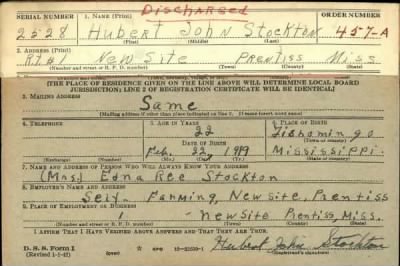 Discharged
SERIAL NUMBER 1. NAME (Print) ORDER NUMBER
2528 Hubert John Stockton 457-A
(First) (Middle) (Last)
2. ADDRESS (Print)
Rt#1 New Site Prentiss Miss.
(Number and street or R. F. D. number) (Town) (County) (State)
[THE PLACE OF RESIDENCE GIVEN ON THE LINE ABOVE WILL DETERMINE LOCAL BOARD
JURISDICTION; LINE 2 OF REGISTRATION CERTIFICATE WILL BE IDENTICAL]
3. MAILING ADDRESS
Same
[Mailing address if other than place indicated on line 2. If same insert word same]
4. TELEPHONE 5. AGE IN YEARS 6. PLACE OF BIRTH
22 Tishomingo
DATE OF BIRTH (Town or county)
Feb. 22, 1919 Mississippi.
(Exchange) (Number) (Mo.) (Day) (Yr.) (State or country)
7. NAME AND ADDRESS OF PERSON WHO WILL ALWAYS KNOW YOUR ADDRESS
(Mrs.) Edna Ree Stockton
8. EMPLOYER'S NAME AND ADDRESS
Self - Farming, New Site, Prentiss
9. PLACE OF EMPLOYMENT OR BUSINESS
- New Site Prentiss, Miss.
(Number and street or R. F. D. number) (Town) (County) (State)
I AFFIRM THAT I HAVE VERIFIED ABOVE ANSWERS AND THAT THEY ARE TRUE.
D. S. S. Form 1 Hubert John Stockton
(Revised 1-1-42) (Registrant's signature)